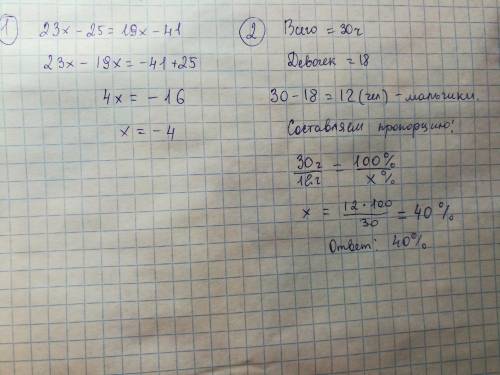 1 23x - 25 = 19x - 41
23x - 19x = -41 + 25
4x = -16
x = -4
2 Всего = 30ч
Девочек = 18
30 - 18 = 12 (чел) - мальчики.
Составляем пропорцию:
30ч/12ч = 100%/x%
x = 12·100/30 = 40%
Ответ: 40%